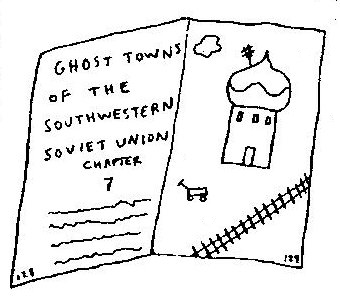 GHOST TOWNS
OF THE
SOUTHWESTERN
SOVIET UNION
CHAPTER
7
128
129